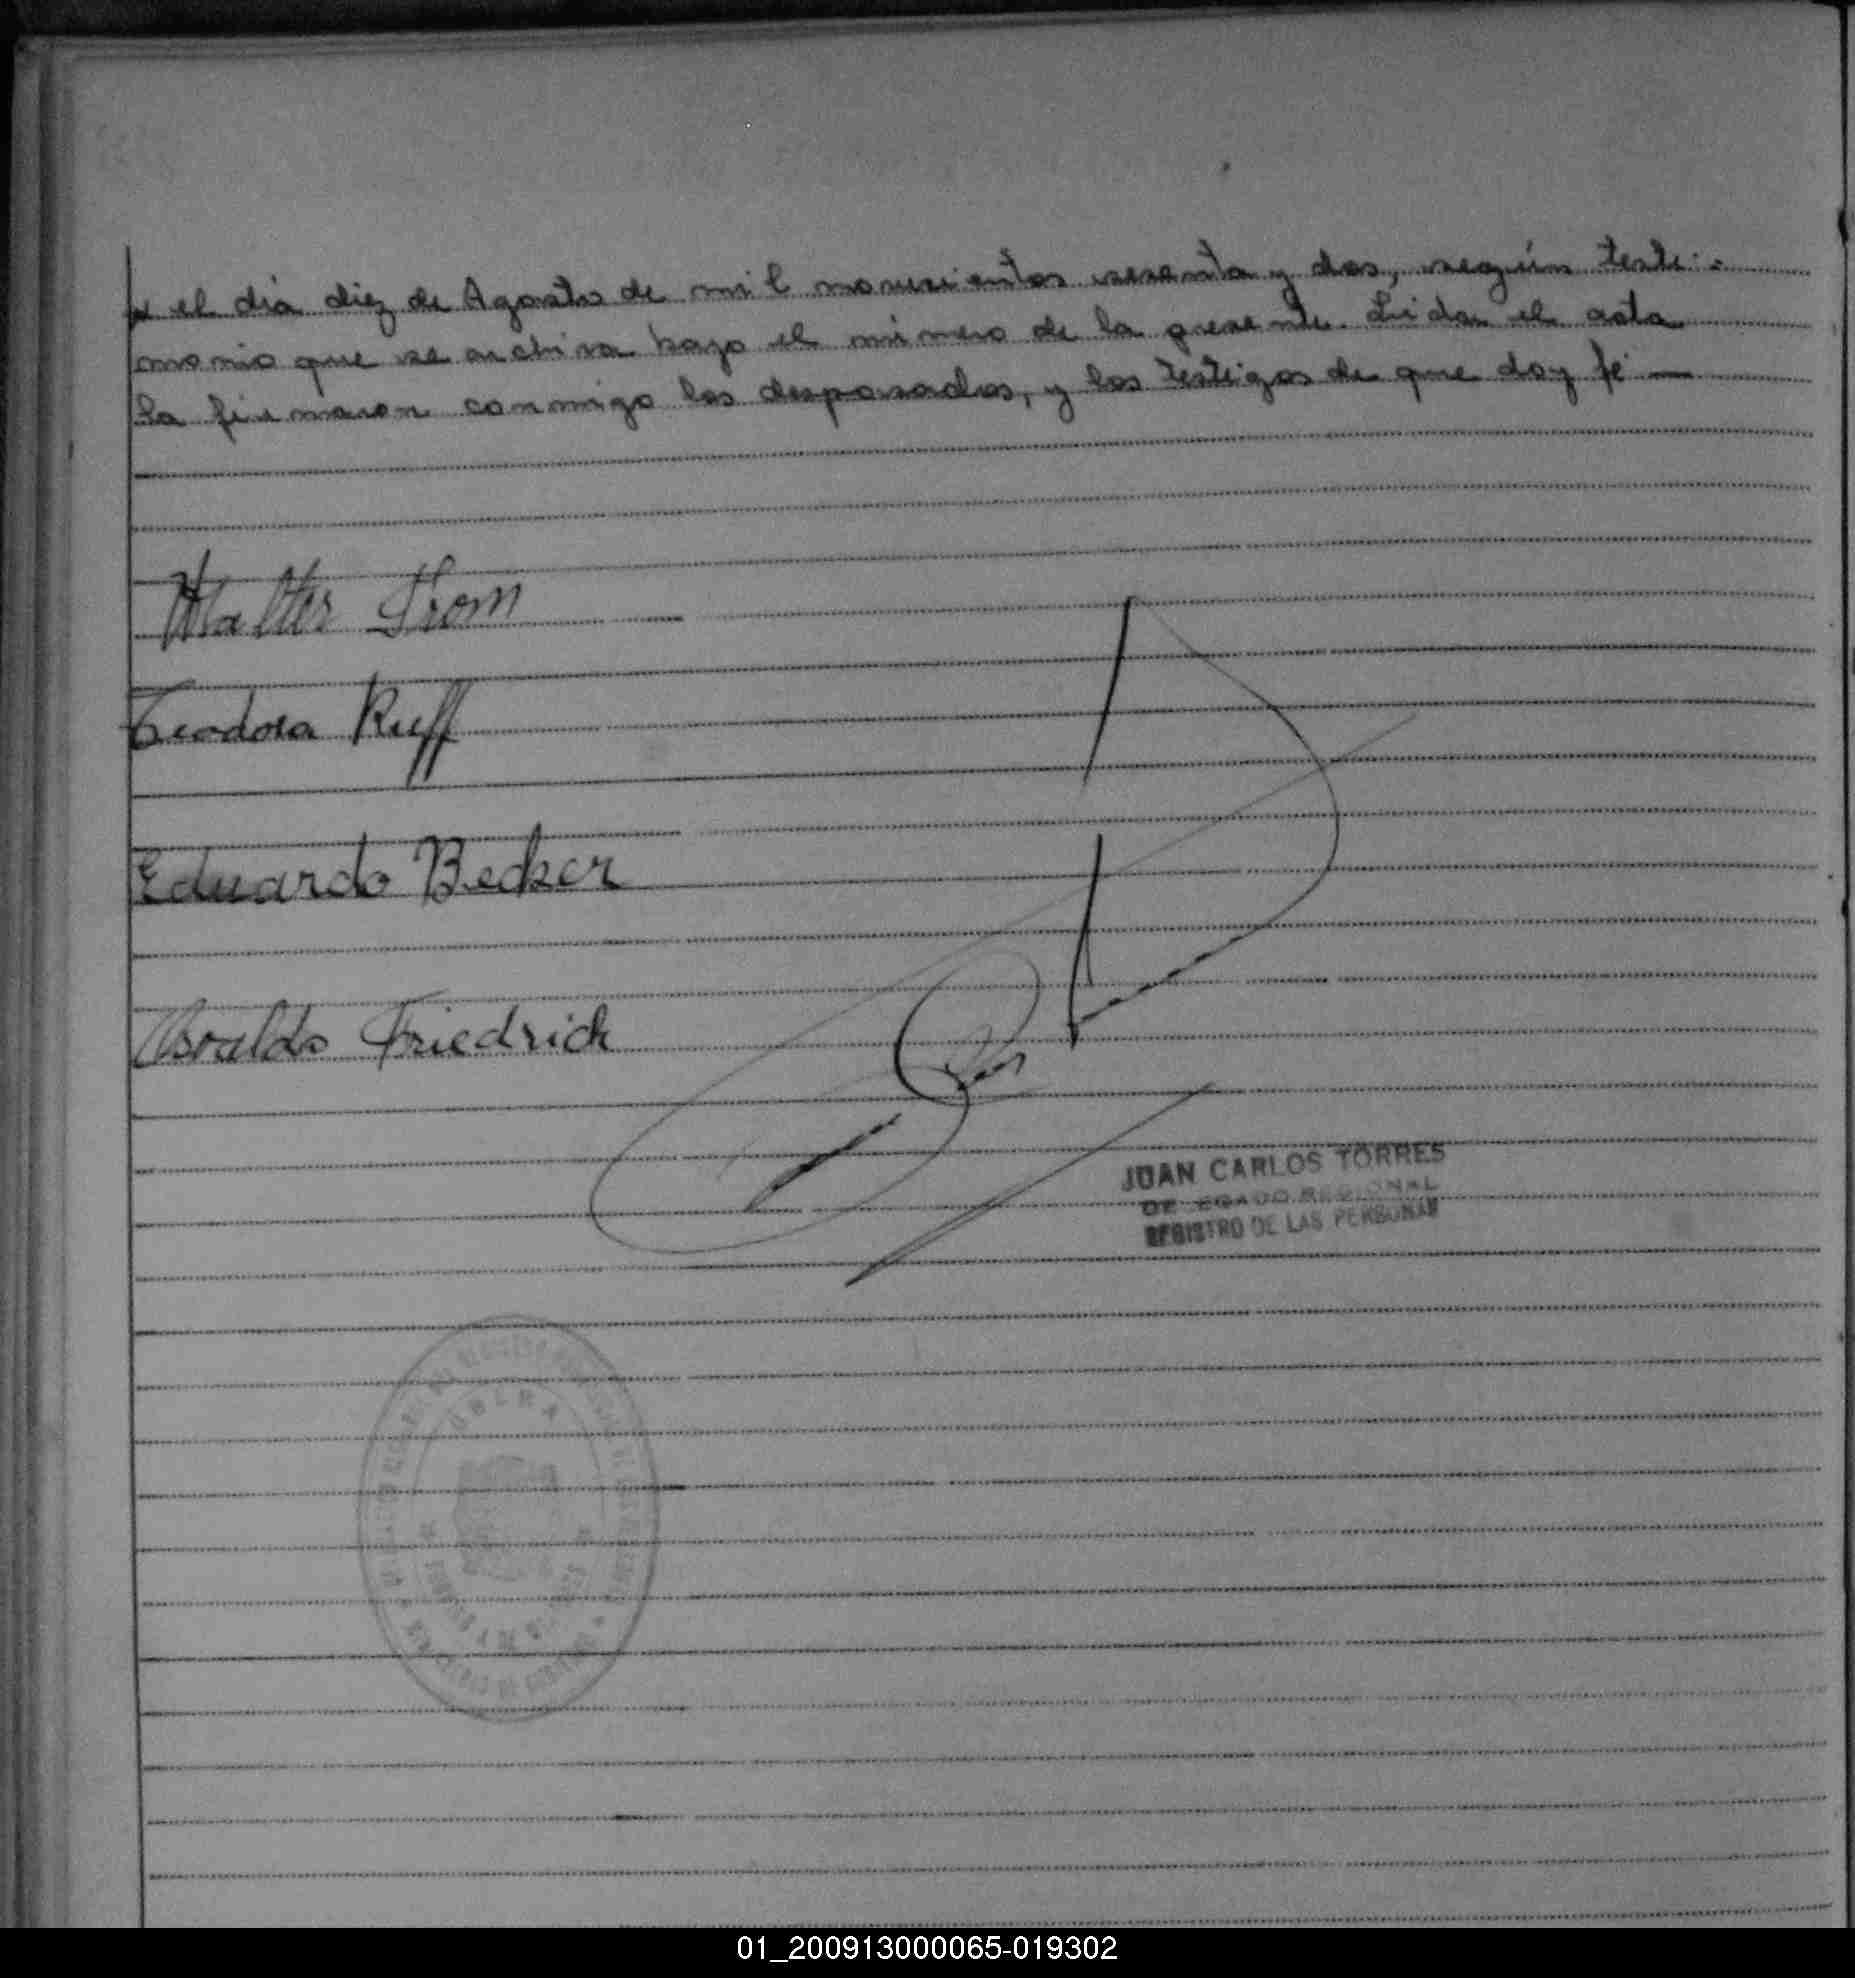 el día diez de Agosto de mil novecientos sesenta y dos, según testi-
monio que se archiva bajo el número de la presente. Leída el acta
la firmaron conmigo los desposados, y los testigos de que doy fé —
Walter Trom
Teodora Ruff
Eduardo Becker
Osvaldo Friedrich
JUAN CARLOS TORRES
DELEGADO REGIONAL
REGISTRO DE LAS PERSONAS
OBERA
01_200913000065-019302